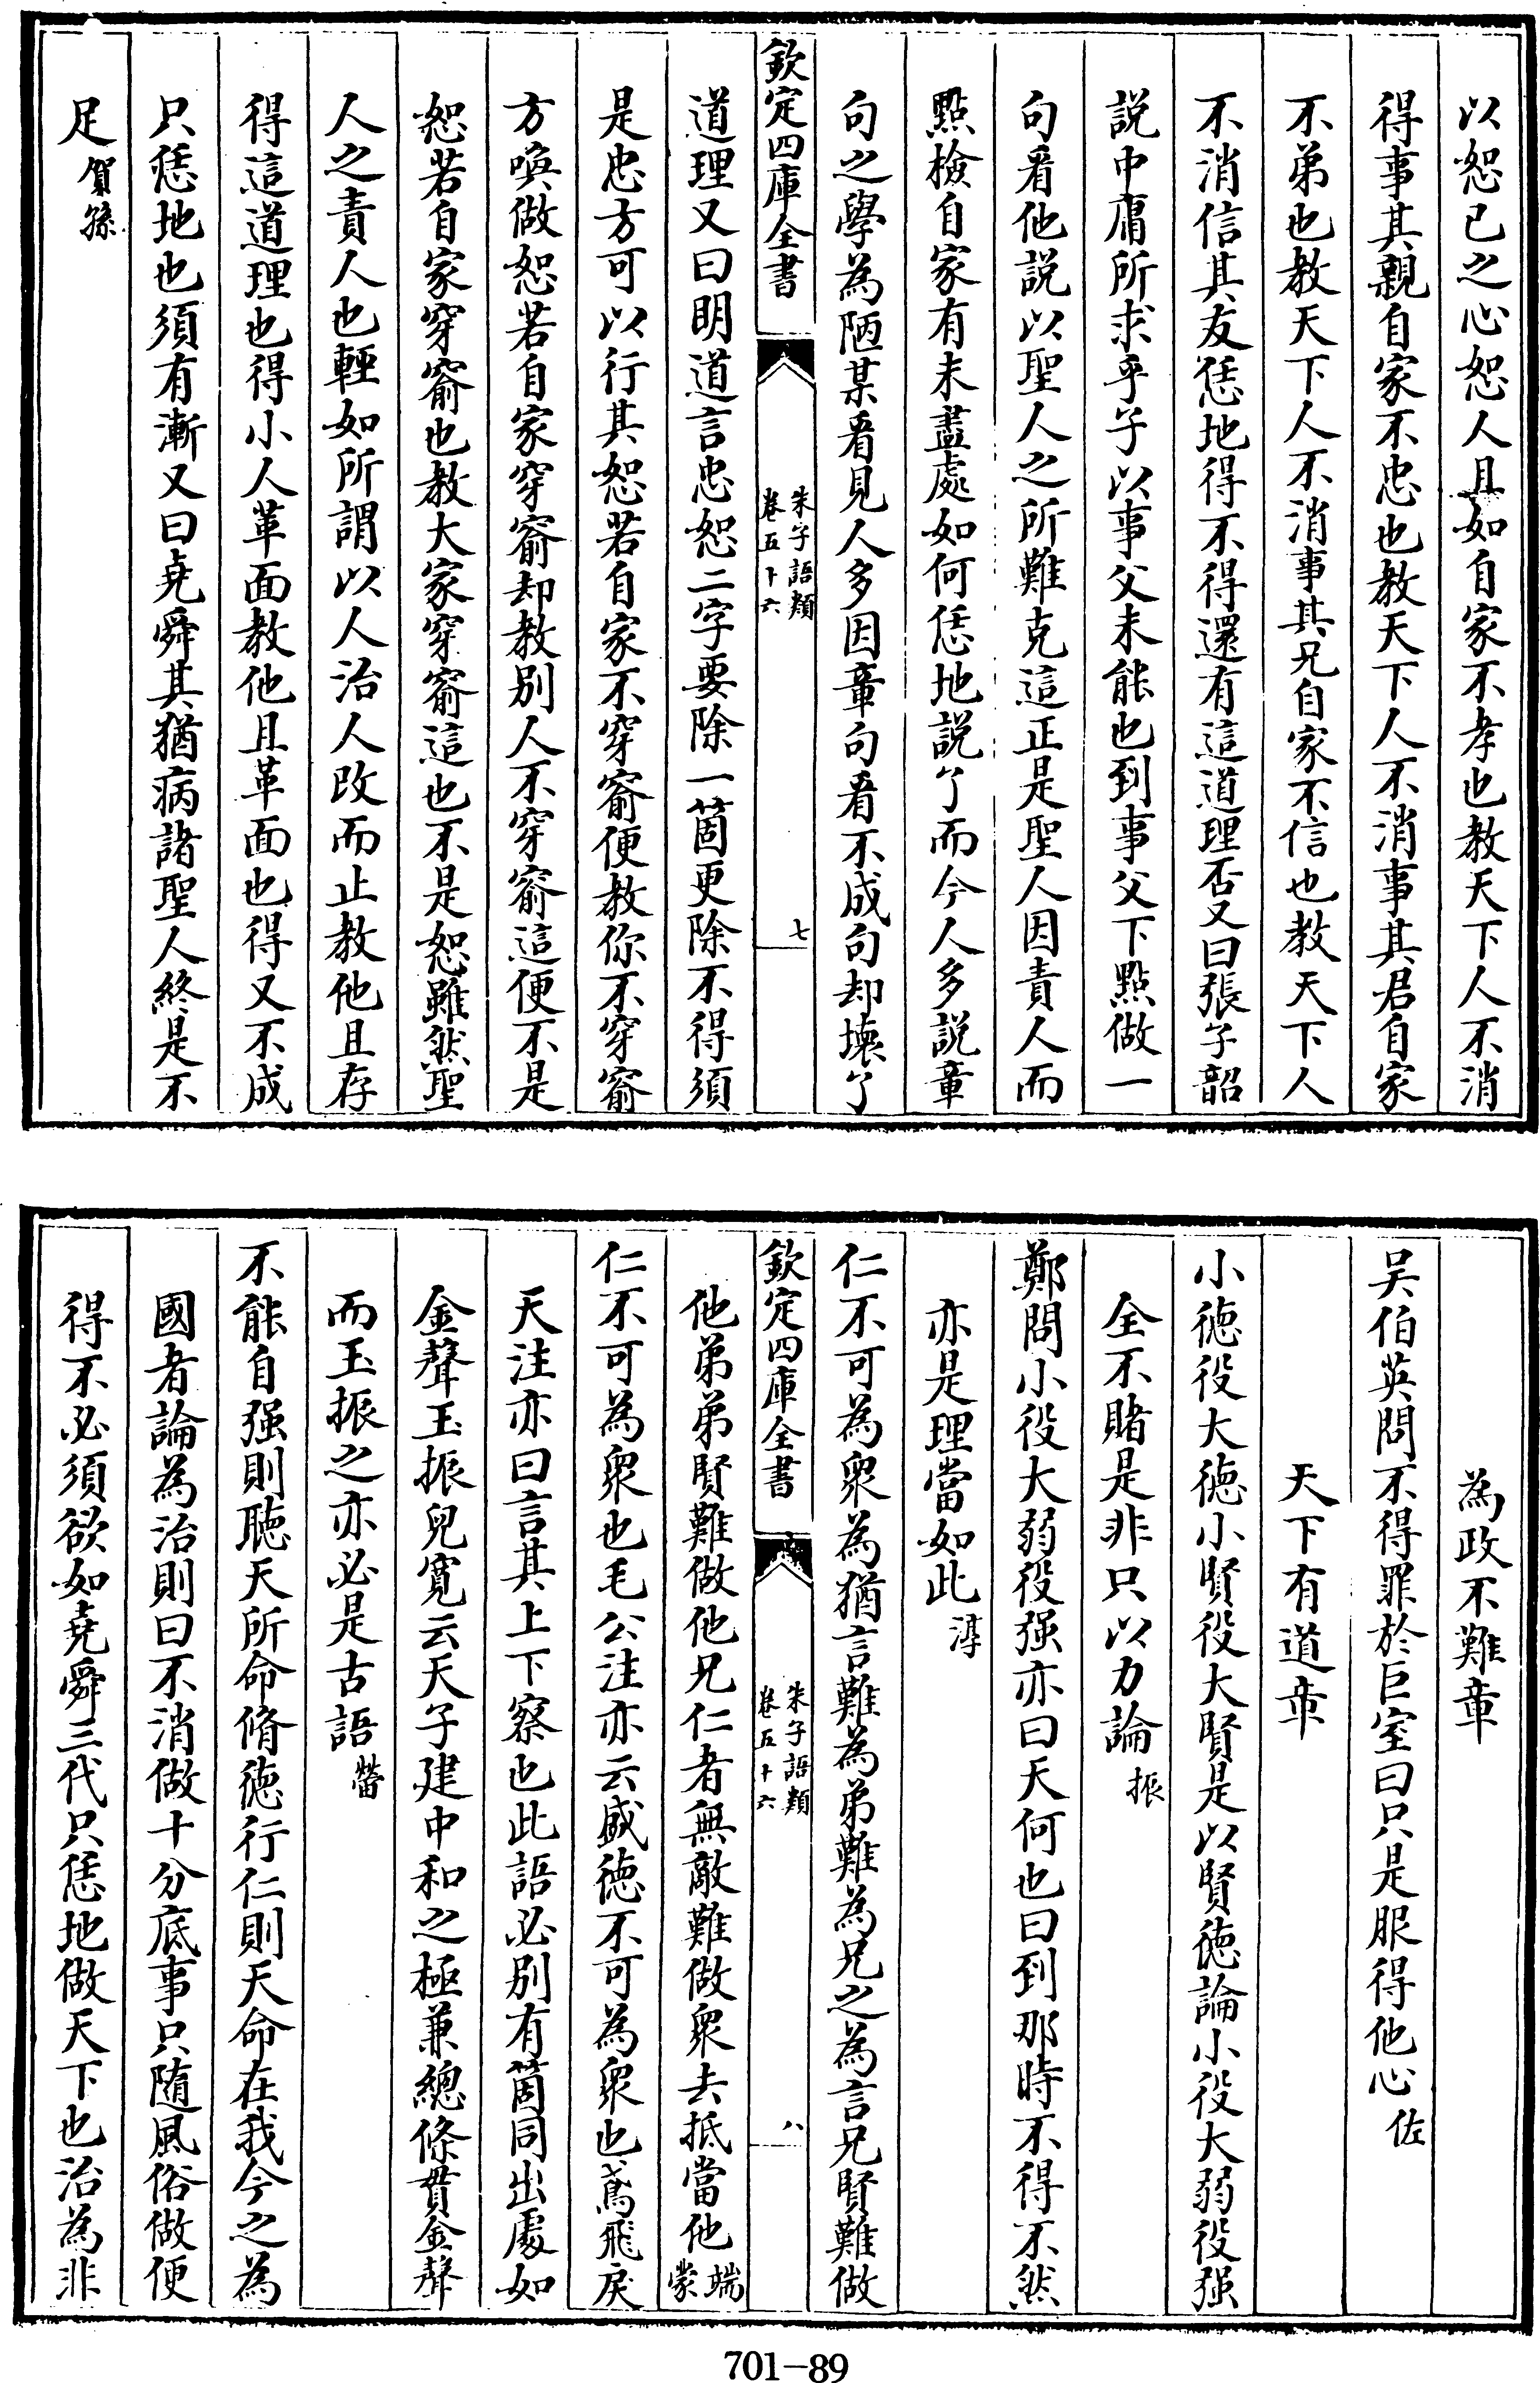 以恕已之心恕人且如自家不孝也教天下人不消
得事其親自家不忠也教天下人不消事其君自家
不弟也教天下人不消事其兄自家不信也教天下人
不消信其友恁地得不得還有這道理否又曰張子韶
説中庸所求乎子以事父未能也到事父下點做一
句看他説以聖人之所難克這正是聖人因責人而
點檢自家有未盡處如何恁地説了而今人多説章
句之學為陋某看見人多因章句看不成句却壞了
欽定四庫全書
朱子語類
卷五十六
七
道理又曰明道言忠恕二字要除一箇更除不得須
是忠方可以行其恕若自家不穿窬便教你不穿窬
方喚做恕若自家穿窬却教别人不穿窬這便不是
恕若自家穿窬也教大家穿窬這也不是恕雖然聖
人之責人也輕如所謂以人治人改而止教他且存
得這道理也得小人革面教他且革面也得又不成
只恁地也須有漸又曰堯舜其猶病諸聖人終是不
足賀孫
為政不難章
吴伯英問不得罪於巨室曰只是服得他心佐
天下有道章
小徳役大徳小賢役大賢是以賢徳論小役大弱役强
全不賭是非只以力論振
鄭問小役大弱役强亦曰天何也曰到那時不得不然
亦是理當如此淳
仁不可為衆為猶言難為弟難為兄之為言兄賢難做
欽定四庫全書
朱子語類
卷五十六
八
他弟弟賢難做他兄仁者無敵難做衆去抵當他端蒙
仁不可為衆也毛公注亦云盛徳不可為衆也鳶飛戾
天注亦曰言其上下察也此語必别有箇同出處如
金聲玉振兒寛云天子建中和之極兼總條貫金聲
而玉振之亦必是古語㽦
不能自强則聽天所命脩徳行仁則天命在我今之為
國者論為治則曰不消做十分底事只隨風俗做便
得不必須欲如堯舜三代只恁地做天下也治為非
701-89